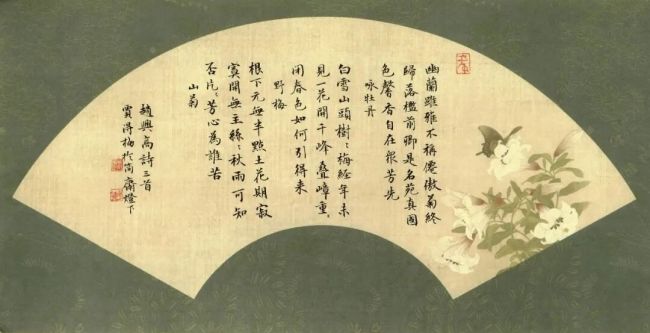 幽蘭雖雅不稱僊傲菊終
歸落檻前卿是名苑真國
色馨香自在衆芳先
咏牡丹
白雪山頭樹〻梅經年未
見一花開千峰疊嶂重
閉春色如何引得来
野梅
根下元無半點土花期寂
寞開無主絲〻秋雨可知
否片〻芳心為誰苦
山菊
趙興高詩三首
賈得於简齋燈下